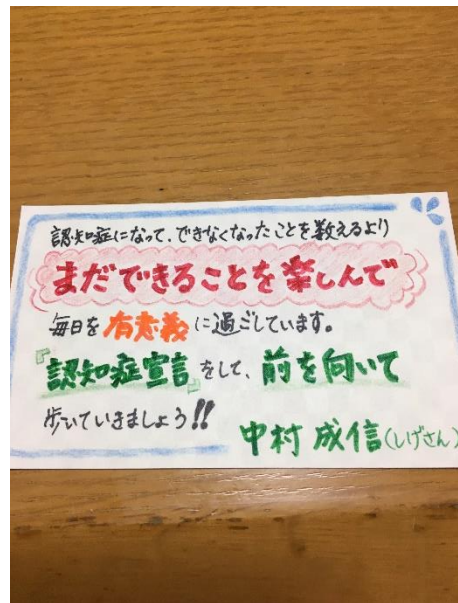 認知症になって、できなくなったことを数えるより
まだできることを楽しんで
毎日を有意義に過ごしています。
『認知症宣言』をして、前を向いて
歩いていきましょう!!
中村 成信(しげさん)